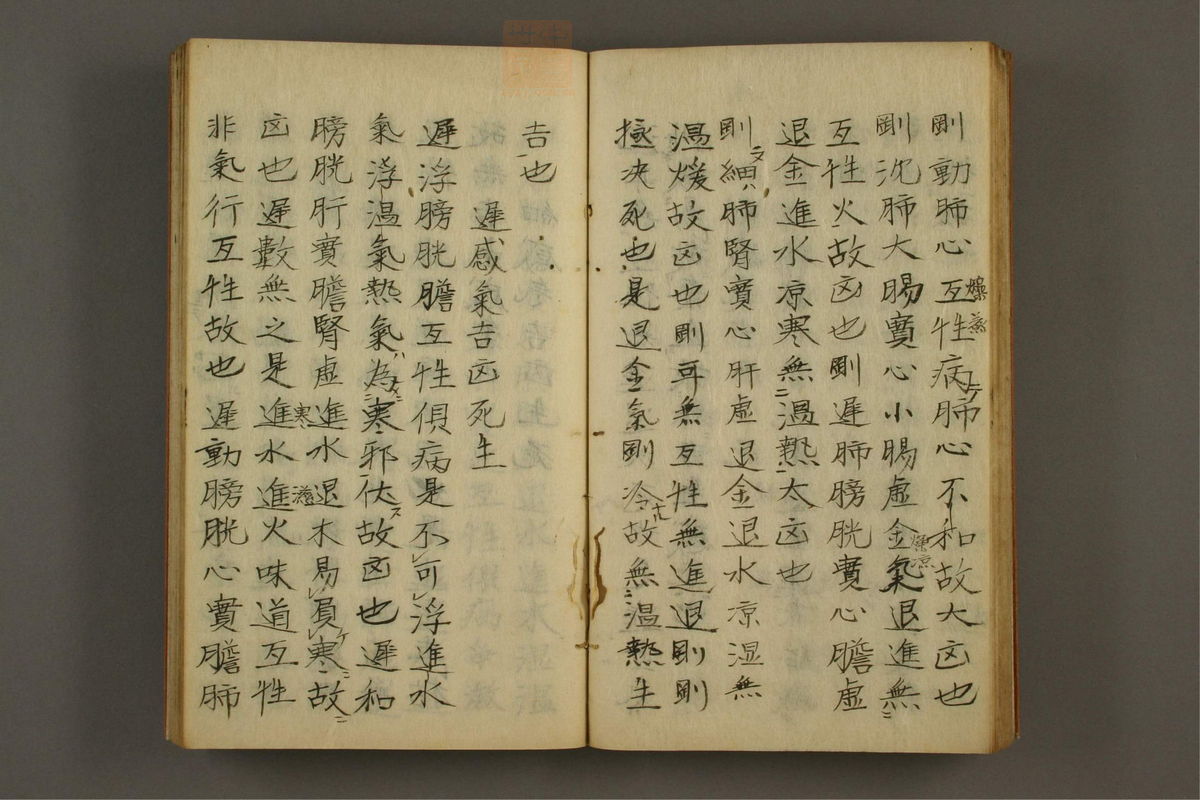 剛動肺心互牲病肺心不和故大凶也
燥蒸
剛沈肺大腸實心小腸虚金氣退進無
燥凉
互牲火故凶也剛遲肺膀胱實心膽虚
退金進水凉寒無温熱太凶也
剛細肺腎實心肝虚退金退水凉湿無
温煖故凶也剛耳無互牲無進退剛剛
極决死也是退金氣剛冷故無温熱生
吉也　遲感氣吉凶死生
遲浮膀胱膽互牲俱病是不可浮進水
氣浮温氣熱氣為寒邪伏故凶也遲和
膀胱肝實膽腎虚進水退木易損寒故
凶也遲數無之是進水進火味道互牲
寒
非氣行互牲故也遲動膀胱心實膽肺